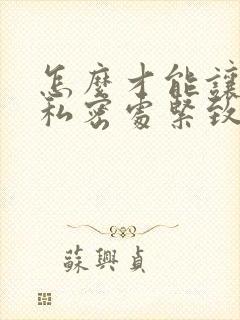 怎麼才能讓
私密處緊致
蘇興貞